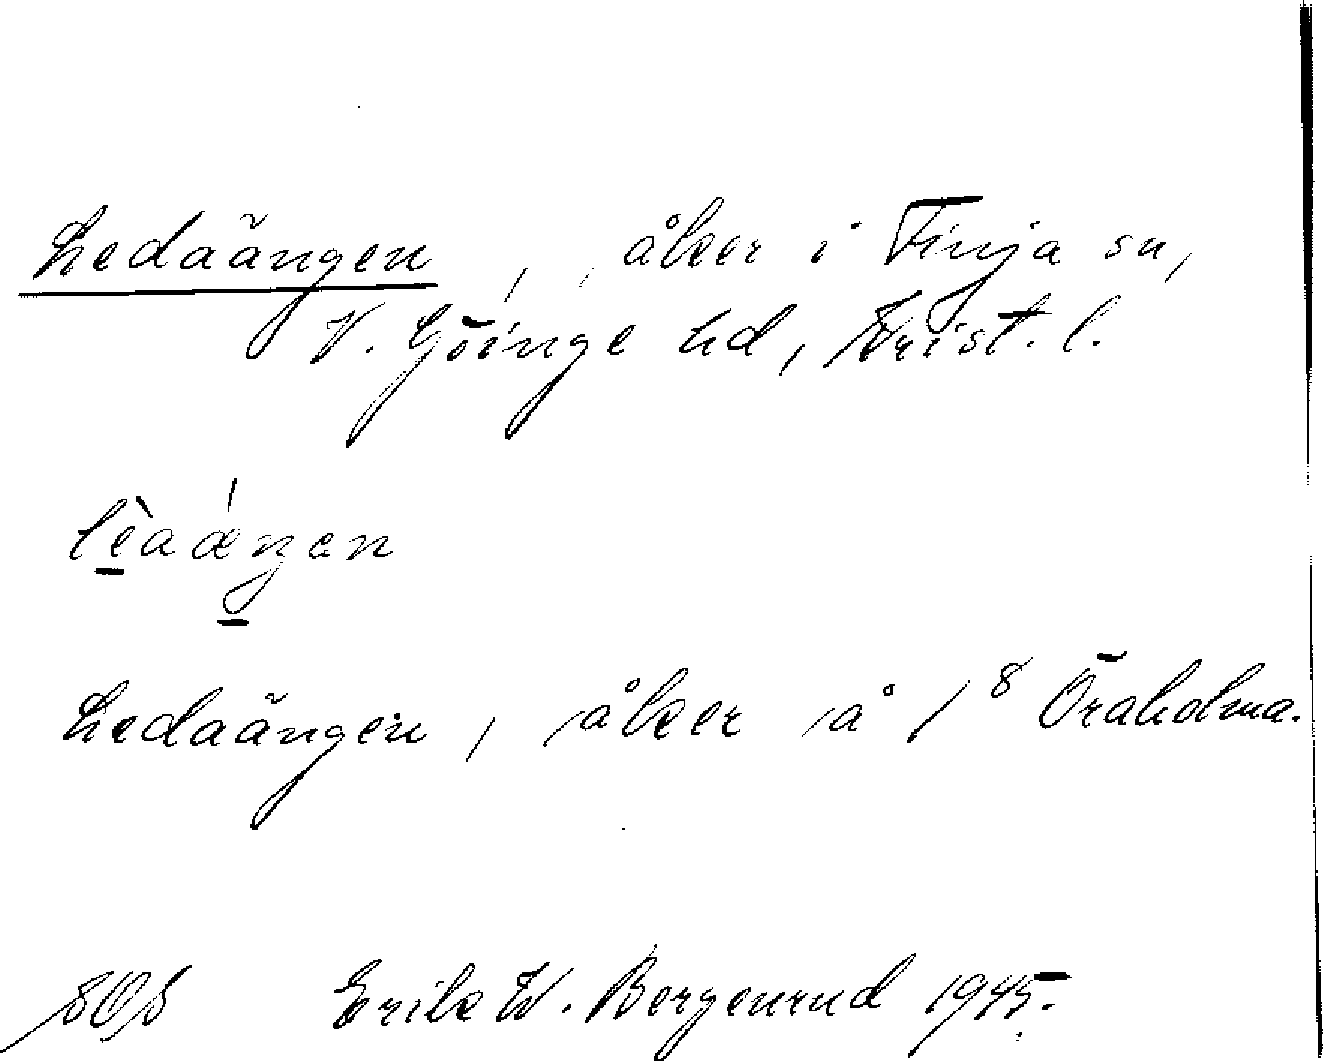 Ledaängen, åker i Finja sn,
V. Göinge hd, Krist. l.
lèaǽŋen
Ledaängen, åker å 1⁸ Öraholma.
Erik W. Bergenrud 1945.